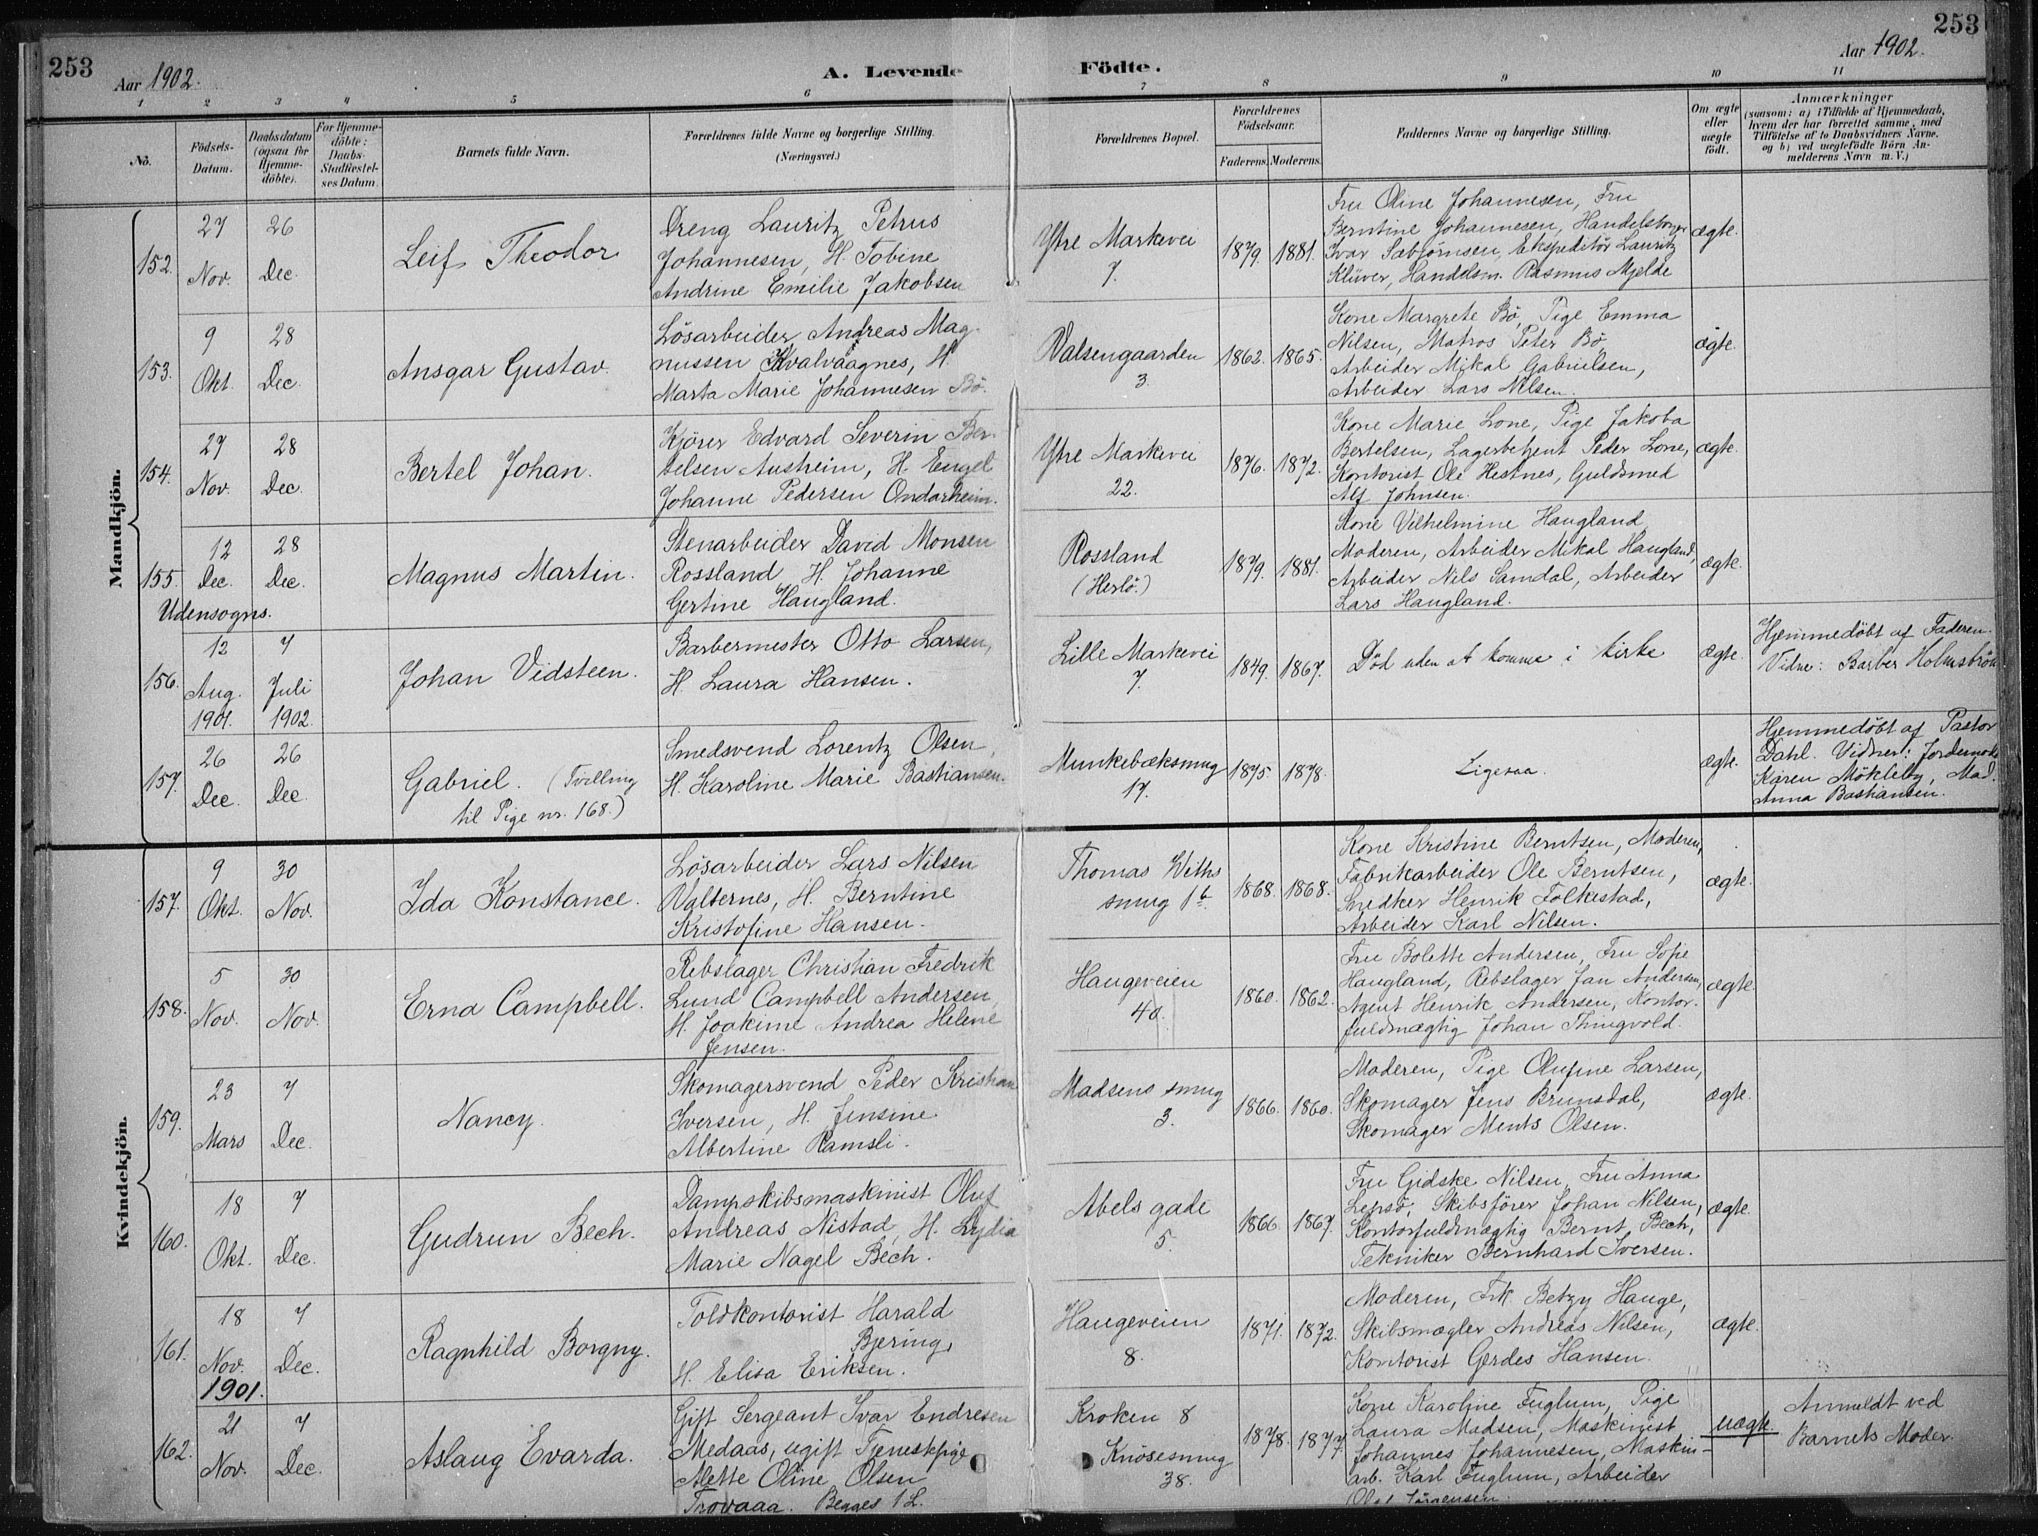 253
Aar 1902.
A. Levende Födte.
Aar 1902.
253
1 2 3 4 5 6 7 8 9 10 11
No.
Födsels-
Datum.
Daabsdatum
(ogsaa for
Hjemme-
döbte).
For Hjemme-
döbte:
Daabs-
Stadfæstel-
ses Datum.
Barnets fulde Navn.
Forældrenes fulde Navne og borgerlige Stilling.
(Næringsvei.)
Forældrenes Bopæl.
Forældrenes
Födselsaar.
Faderens. Moderens.
Faddernes Navne og borgerlige Stilling.
Om ægte
eller
uægte
födt.
Anmærkninger
(saasom: a) i Tilfælde af Hjemmedaab,
hvem der har forrettet samme, med
Tilföielse af to Daabsvidners Navne.
og b) ved uægtefödte Börn An-
melderens Navn m. V.)
Mandkjön.
152.
27
Nov.
26
Dec.
Leif Theodor
Dreng Lauritz Petrus
Johannesen, H. Tobine
Andrine Emilie Jakobsen
Ytre Markevei
7.
1879. 1881.
Fru Oline Johannesen, Fru
Berntine Johannesen,
Ivar Sæbjörnsen, Ekspeditör Lauritz
Klüver, Handelsm. Rasmus Mjelde
ægte.
153.
9
Okt.
28
Dec.
Ansgar Gustav.
Lösarbeider Andreas Mag-
nussen Kvalvaagnes, H.
Marta Marie Johannesen Bö.
Dalsengaarden
3.
1862. 1865.
Kone Margrete Bö, Pige Emma
Nilsen, Matros Peter Bö,
Arbeider Mikal Gabrielsen,
Arbeider Lars Nilsen.
ægte.
154.
27
Nov.
28
Dec.
Bertel Johan.
Kjörer Edvard Severin Ber-
telsen Austreim, H. Engel
Johanne Pedersen Ondarheim.
Ytre Markevei
22.
1876. 1872.
Kone Marie Lone, Pige Jakoba
Bertelsen, Lagerbetjent Peder Lone,
Kontorist Ole Hestnes, Guldsmed
Alf Johnsen.
ægte.
155.
12
Dec.
28
Dec.
Udensogns.
Magnus Martin.
Stenarbeider David Monsen
Rossland, H. Johanne
Gertine Haugland.
Rossland
(Herlö.)
1879. 1881.
Kone Vilhelmine Haugland,
Moderen, Arbeider Mikal Haugland,
Arbeider Nils Samdal, Arbeider
Lars Haugland.
ægte.
156.
12
Aug.
1901.
7
Juli
1902.
Johan Vidsteen.
Barbermester Otto Larsen,
H. Laura Hansen.
Lille Markevei
7.
1849. 1867.
Död uden at komme i kirke
ægte.
Hjemmedöbt af Faderen.
Vidne: Barber Holmström
157.
26
Dec.
26
Dec.
Gabriel. (Tvilling
til Pige nr. 168.)
Smedsvend Lorentz Olsen,
H. Karoline Marie Bastiansen.
Munkebæksmug
17.
1875 1878.
Ligesaa.
ægte.
Hjemmedöbt af Pastor
Dahl. Vidner: Jordemoder
Karen Mökleby, Mad.
Anna Bastiansen.
Kvindekjön.
157.
9
Okt.
30
Nov.
Ida Konstance.
Lösarbeider Lars Nilsen
Valternes, H. Berntine
Kristofine Hansen.
Thomas Withs
smug 1b.
1868. 1868.
Kone Kristine Berntsen, Moderen,
Fabrikarbeider Ole Berntsen,
Snedker Henrik Folkestad,
Arbeider Karl Nilsen.
ægte.
158.
5
Nov.
30
Nov.
Erna Campbell.
Rebslager Christian Fredrik
Lund Campbell Andersen,
H. Joakime Andrea Helene
Jensen.
Haugeveien
40.
1860. 1862.
Fru Bolette Andersen, Fru Sofie
Haugland, Rebslager Jan Andersen,
Agent Henrik Andersen, Kontor-
fuldmægtig Johan Thingvold.
ægte.
159.
23
Mars
7
Dec.
Nancy.
Skomagersvend Peder Kristian
Iversen, H. Jensine
Albertine Ramsli.
Madsens smug
3.
1866. 1860.
Moderen, Pige Olufine Larsen,
Skomager Jens Brunsdal,
Skomager Ments Olsen.
ægte.
160.
18
Okt.
7
Dec.
Gudrun Bech.
Dampskibsmaskinist Oluf
Andreas Nistad, H. Lydia
Marie Nagel Bech.
Abels gade
5.
1866. 1867.
Fru Gidske Nilsen, Fru Anna
Lepsö, Skibsförer Johan Nilsen,
Kontorfuldmægtig Bernt Bech,
Tekniker Bernhard Iversen.
ægte.
161.
18
Nov.
1901.
7
Dec.
Ragnhild Borgny.
Toldkontorist Harald
Bjering,
H. Elisa Eriksen.
Haugeveien
8.
1871. 1872.
Moderen, Frk Betzy Hauge,
Skibsmægler Andreas Nilsen,
Kontorist Gerdes Hansen.
ægte.
162.
21
Nov.
7
Dec.
Aslaug Evarda.
Gift Sergeant Ivar Endresen
Medaas, ugift Tjenestepige
Mette Oline Olsen
Trovaaa. Begges 1 L.
Kroken 8
Knösesmug
38.
1878. 1877.
Kone Karoline Fuglum, Pige
Laura Madsen, Maskinist
Johannes Johannesen, Maskin-
arb. Karl Fuglum, Arbeider
Olaf Jörgensen.
uægte.
Anmeldt ved
Barnets Moder.